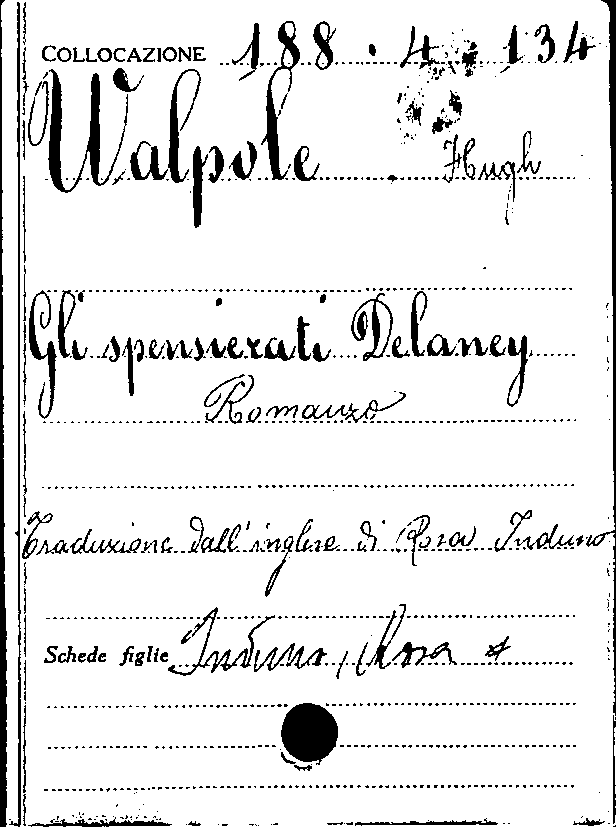 COLLOCAZIONE 188 . 4 . 134
Walpole . Hugh
Gli spensierati Delaney
Romanzo
Traduzione dall'inglese di Rosa Induno
Schede figlie Induno, Rosa *